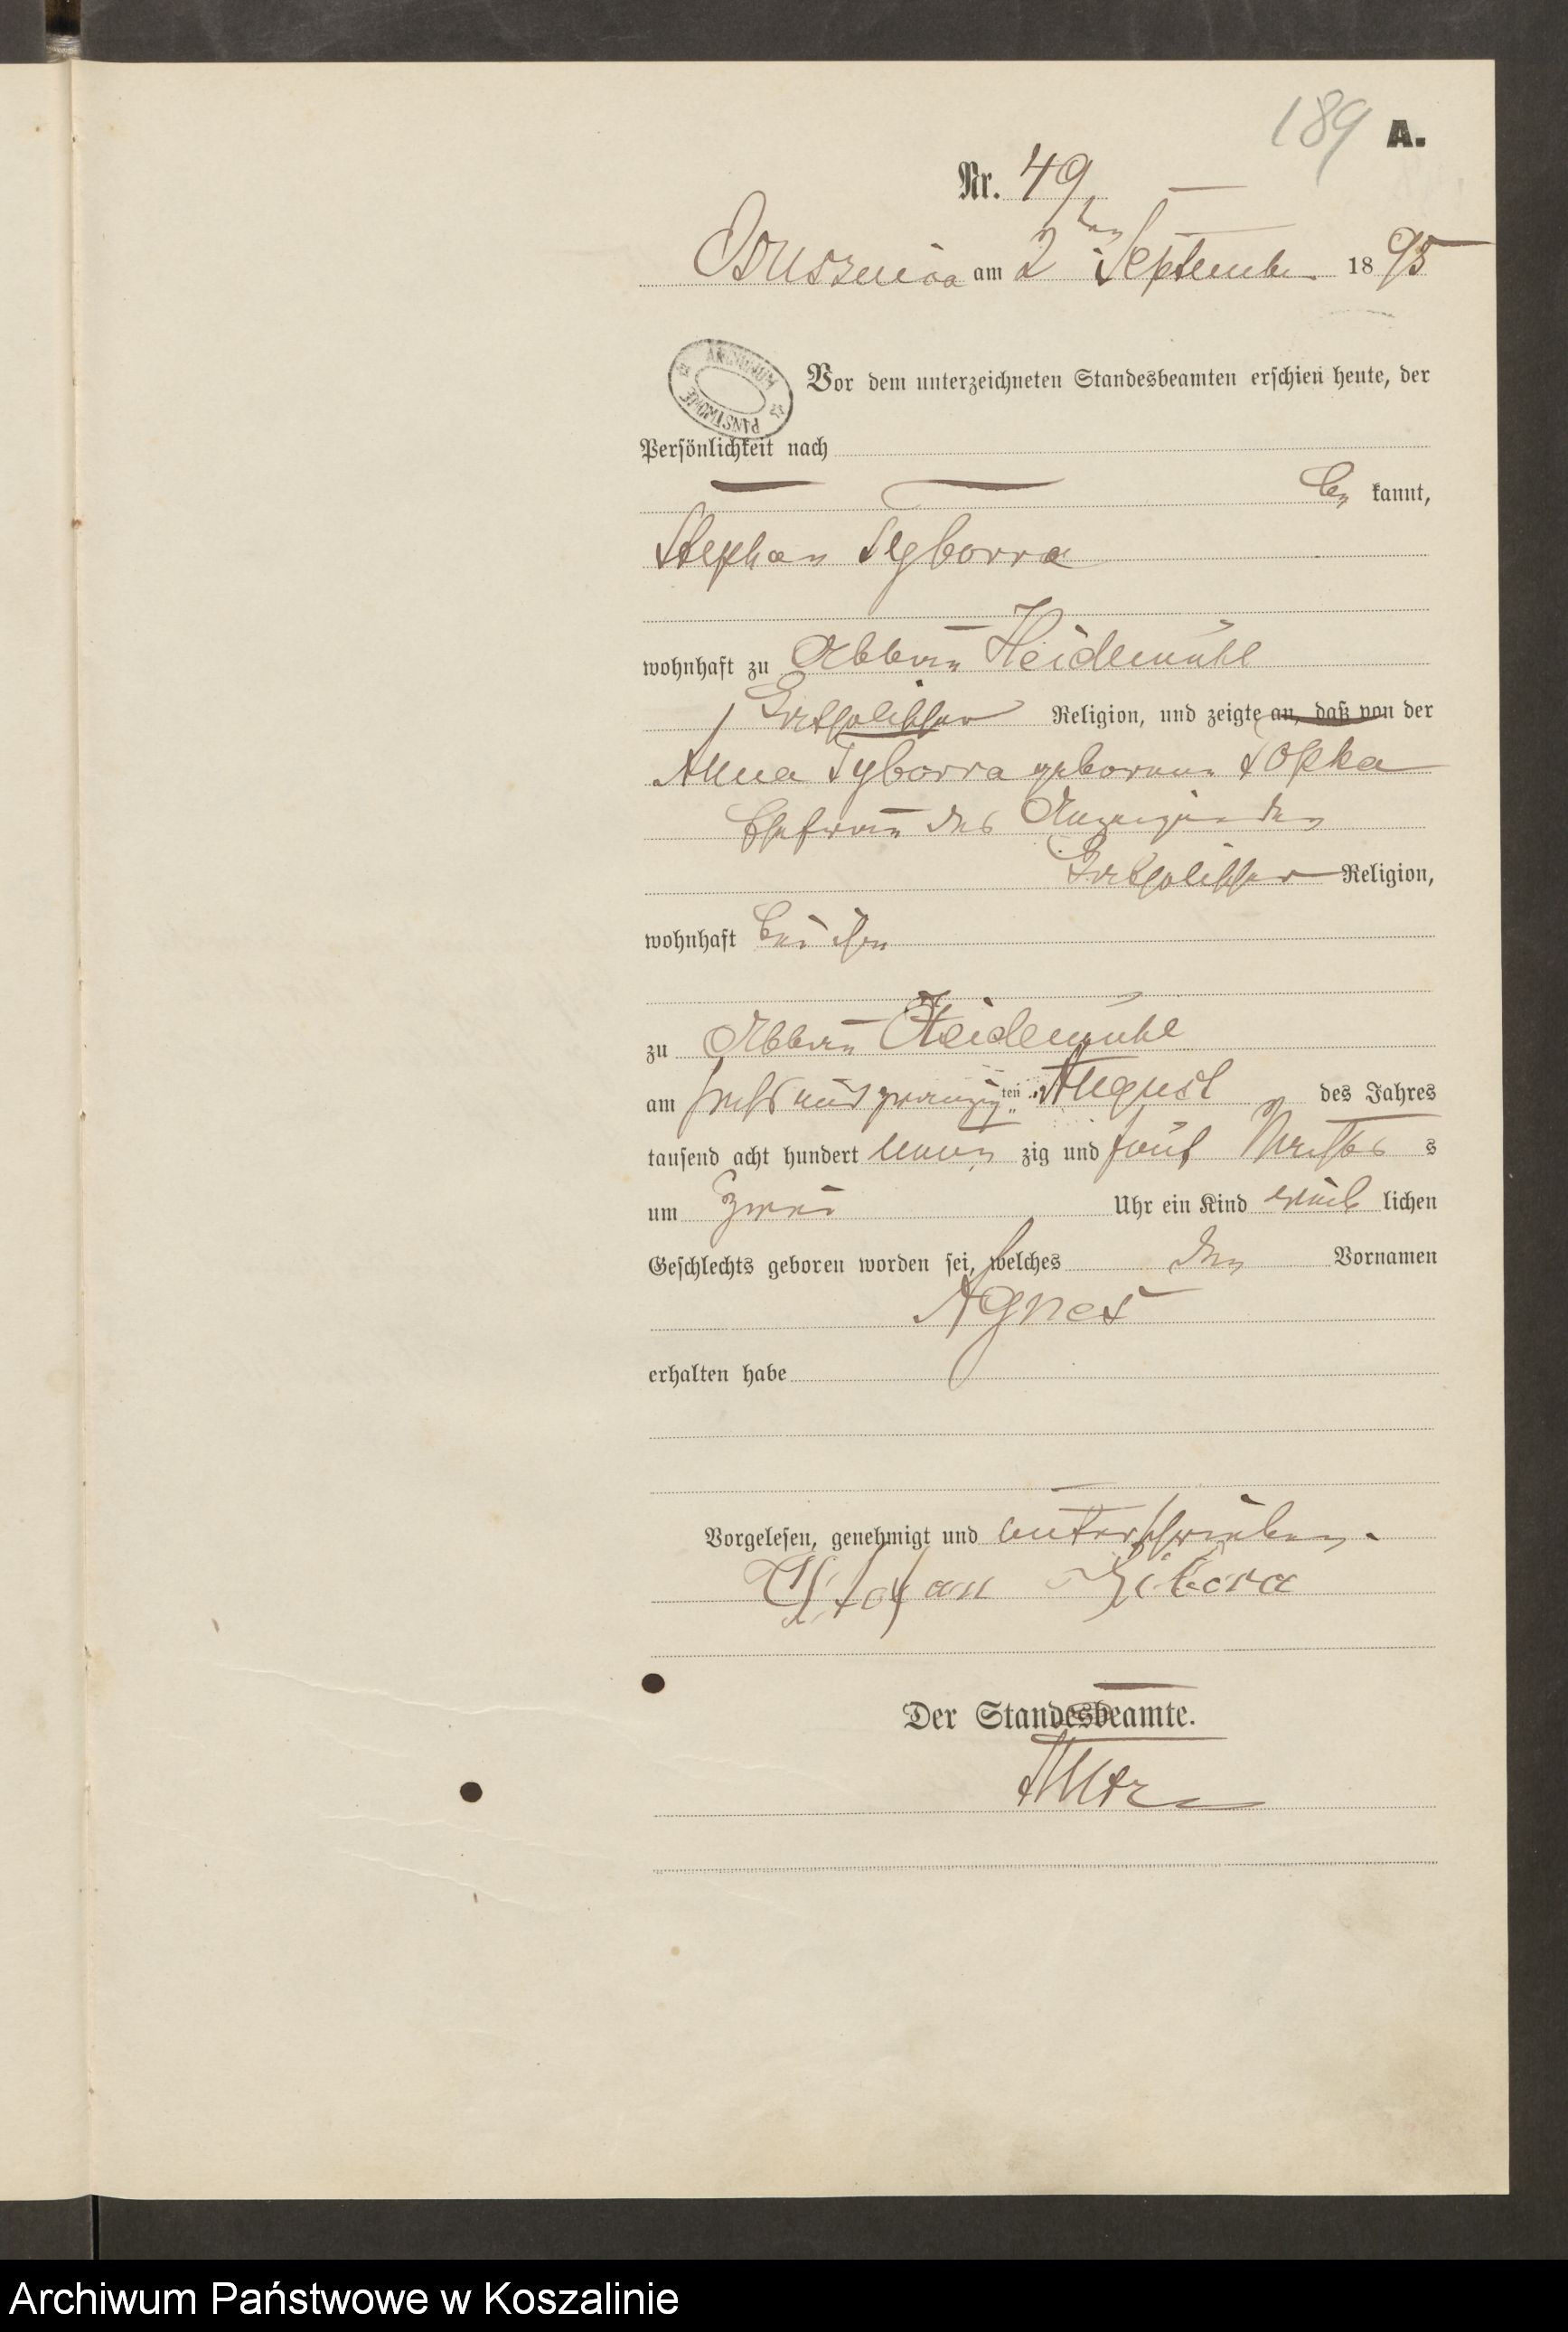 189 A.
Nr. 49
am 2ten September 1895
ARCHIWUM PAŃSTWOWE
Vor dem unterzeichneten Standesbeamten erschien heute, der
Persönlichkeit nach
be kannt,
Stephan Tyborra
wohnhaft zu Abbau Heidemühl
katholischer Religion, und zeigte an, daß von der
Anna Tyborra geborene
Ehefrau des Anzeigenden
katholischer Religion,
wohnhaft bei ihm
zu Abbau Heidemühl
am sechs und zwanzig ten August des Jahres
tausend acht hundert neun zig und fünf Nachts s
um zwei Uhr ein Kind weib lichen
Geschlechts geboren worden sei, welches den Vornamen
Agnes
erhalten habe
Vorgelesen, genehmigt und unterschrieben.
Der Standesbeamte.
Archiwum Państwowe w Koszalinie